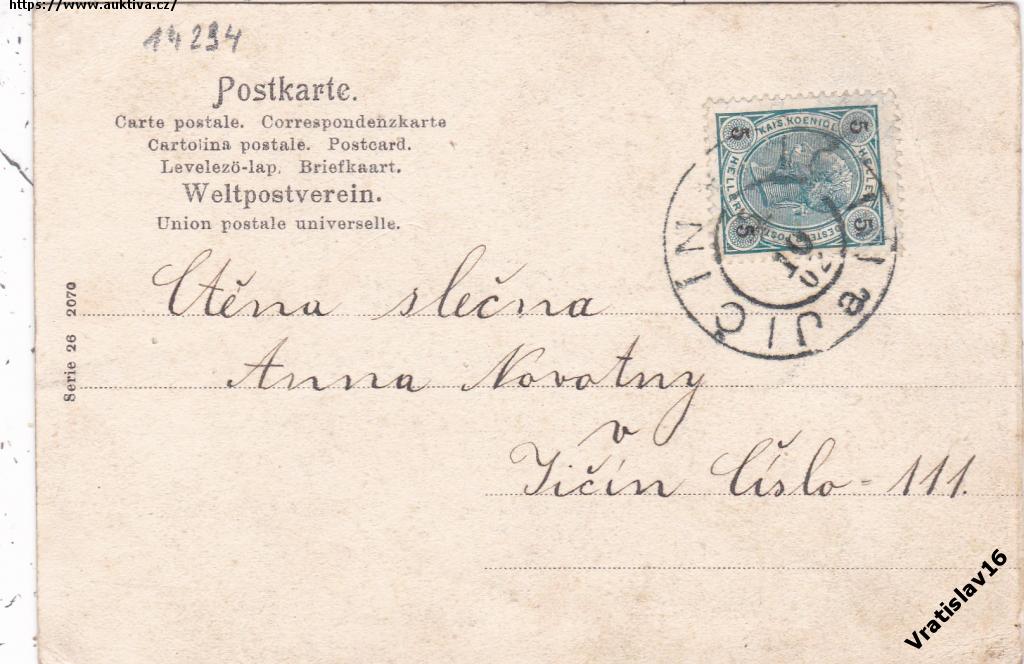 https://www.auktiva.cz/
14294
Postkarte.
Carte postale. Correspondenzkarte
Cartolina postale. Postcard.
Levelező-lap. Briefkaart.
Weltpostverein.
Union postale universelle.
KAIS. KOENIGL.
5 5
HELLER HELLER
5 5
OESTERR. POST
10
02
JIČÍN JIČIN
a
Serie 26 2070
Ctěna slečna
Anna Novotny
v
Jičín Číslo - 111.
Vratislav16